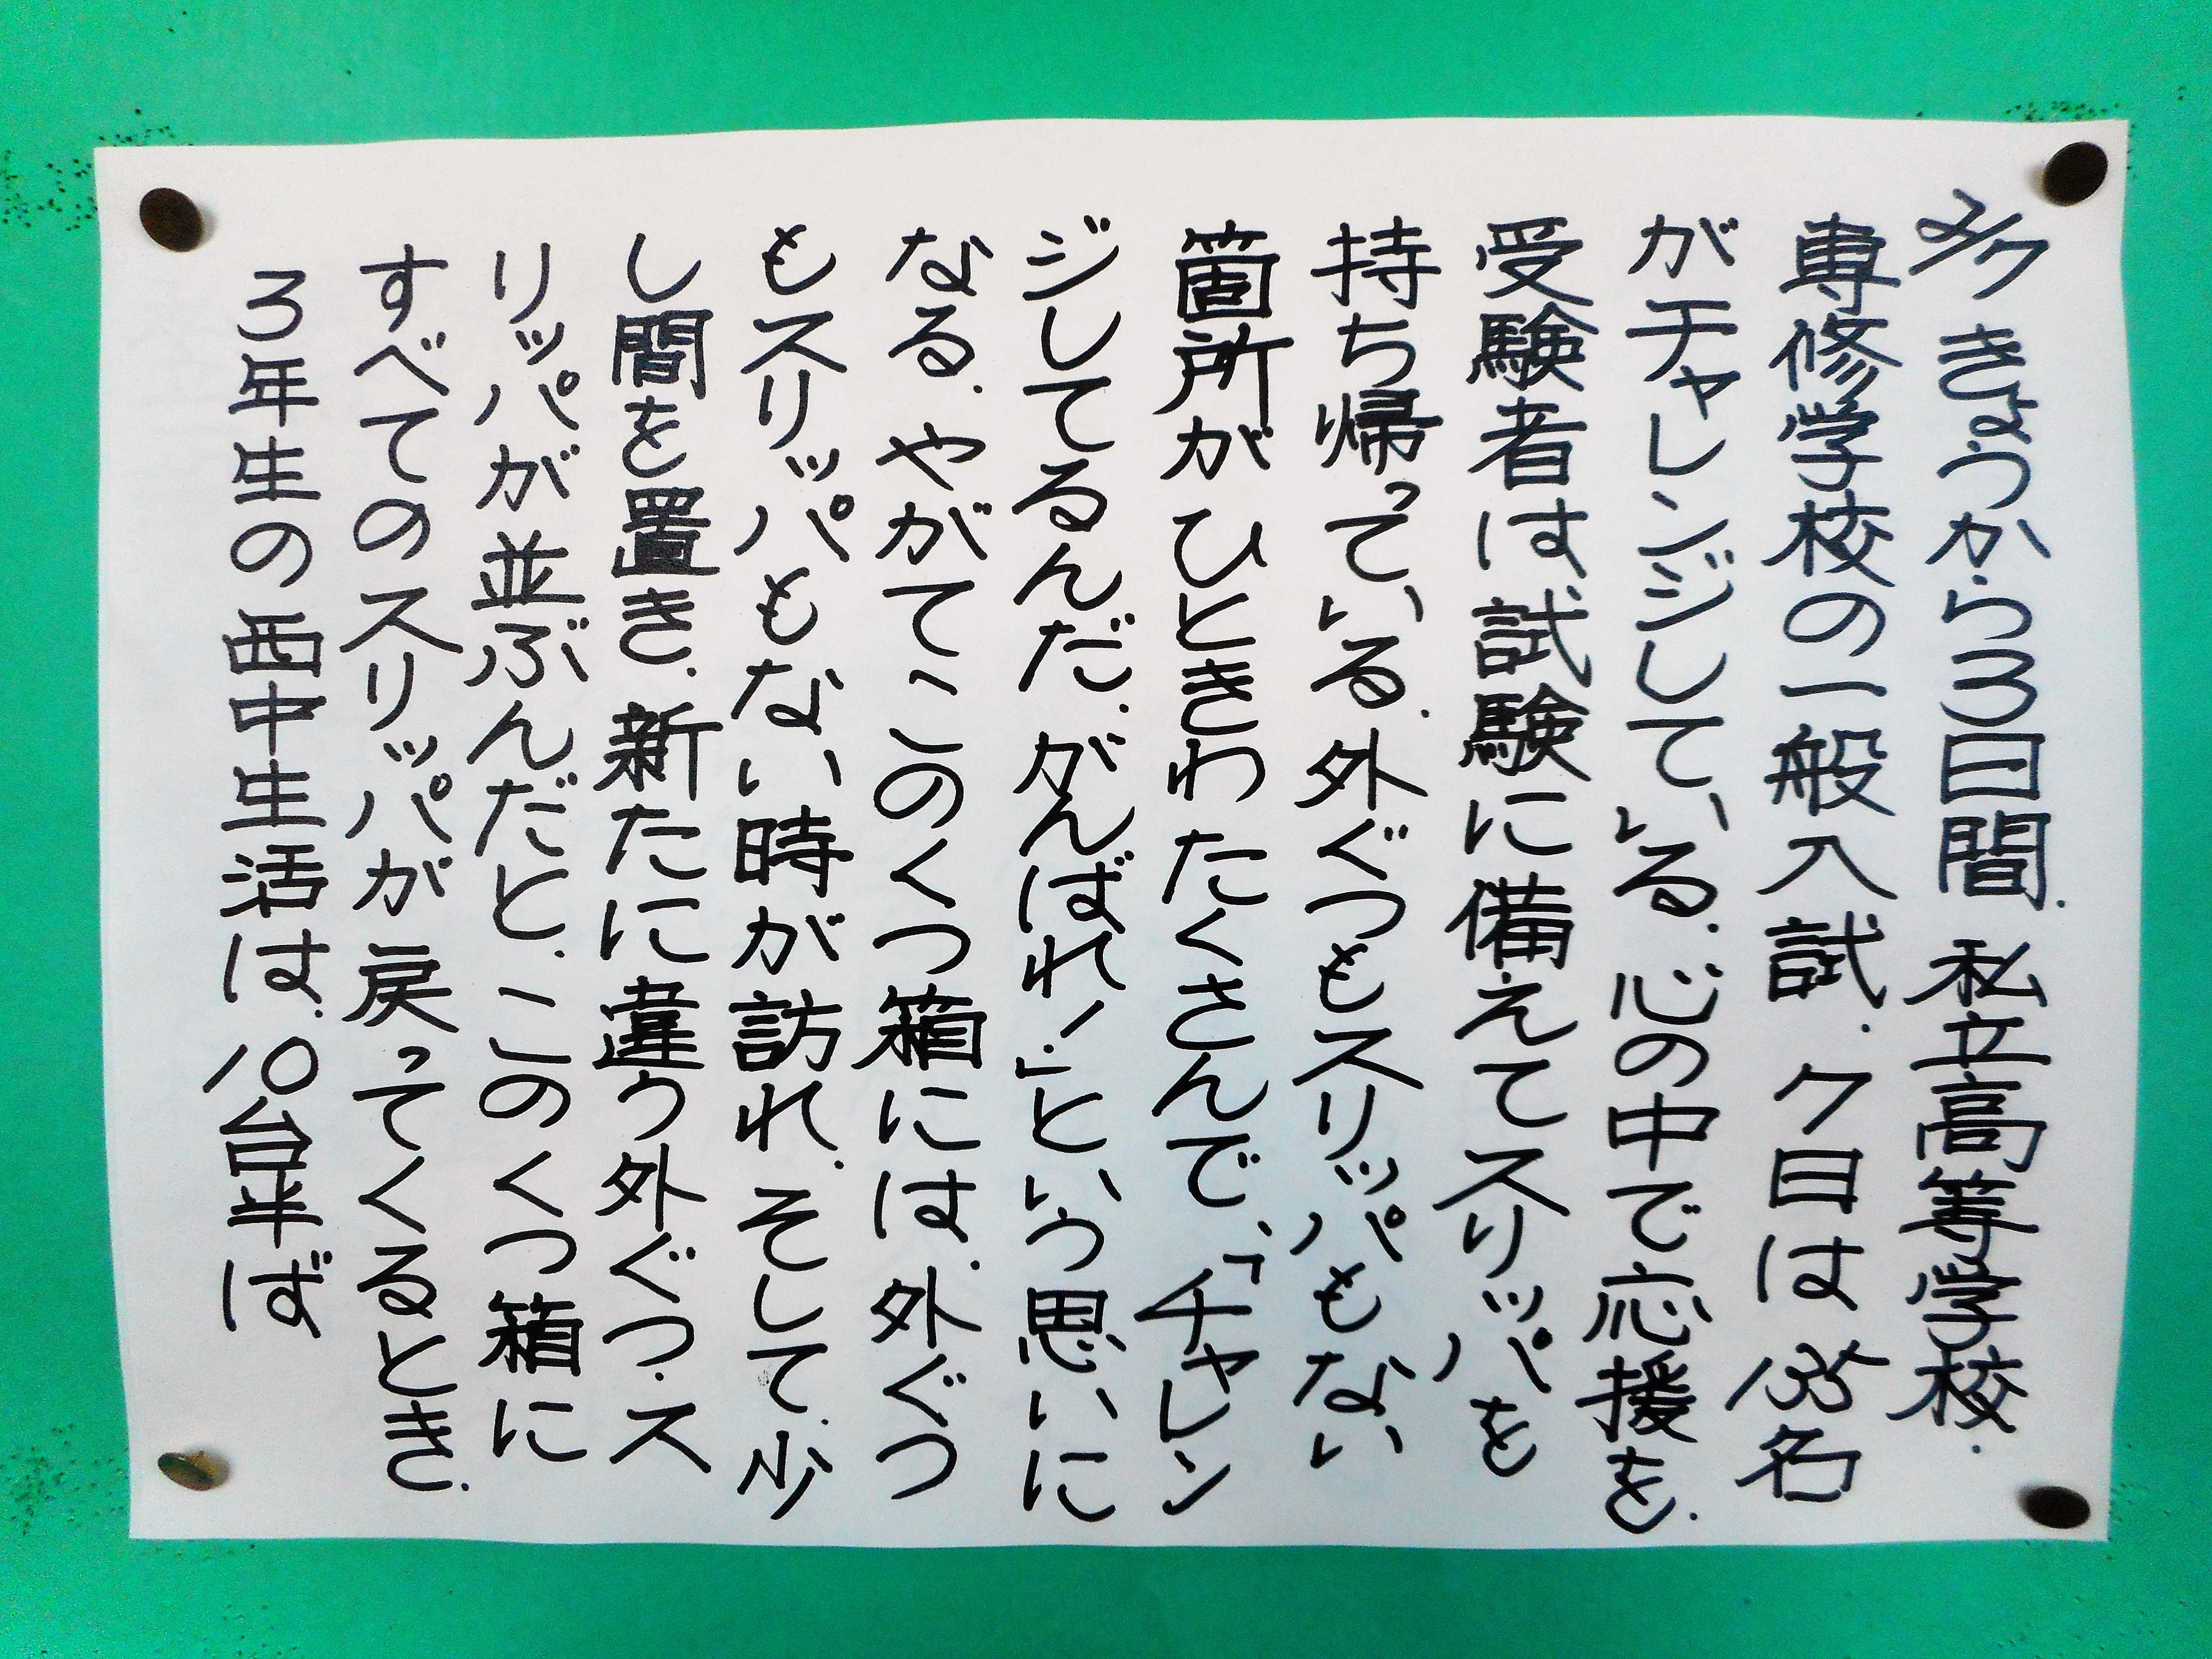 2/7 きょうから3日間、私立高等学校、
専修学校の一般入試。7日は135名
がチャレンジしている。心の中で応援を。
受験者は試験に備えてスリッパを
持ち帰っている。外ぐつもスリッパもない
箇所がひときわたくさんで、「チャレン
ジしてるんだ。がんばれ!」という思いに
なる。やがてこのくつ箱には、外ぐつ
もスリッパもない時が訪れ、そして、少
し間を置き、新たに違う外ぐつ・ス
リッパが並ぶんだと、このくつ箱に
すべてのスリッパが戻ってくるとき、
3年生の西中生活は、10台半ば